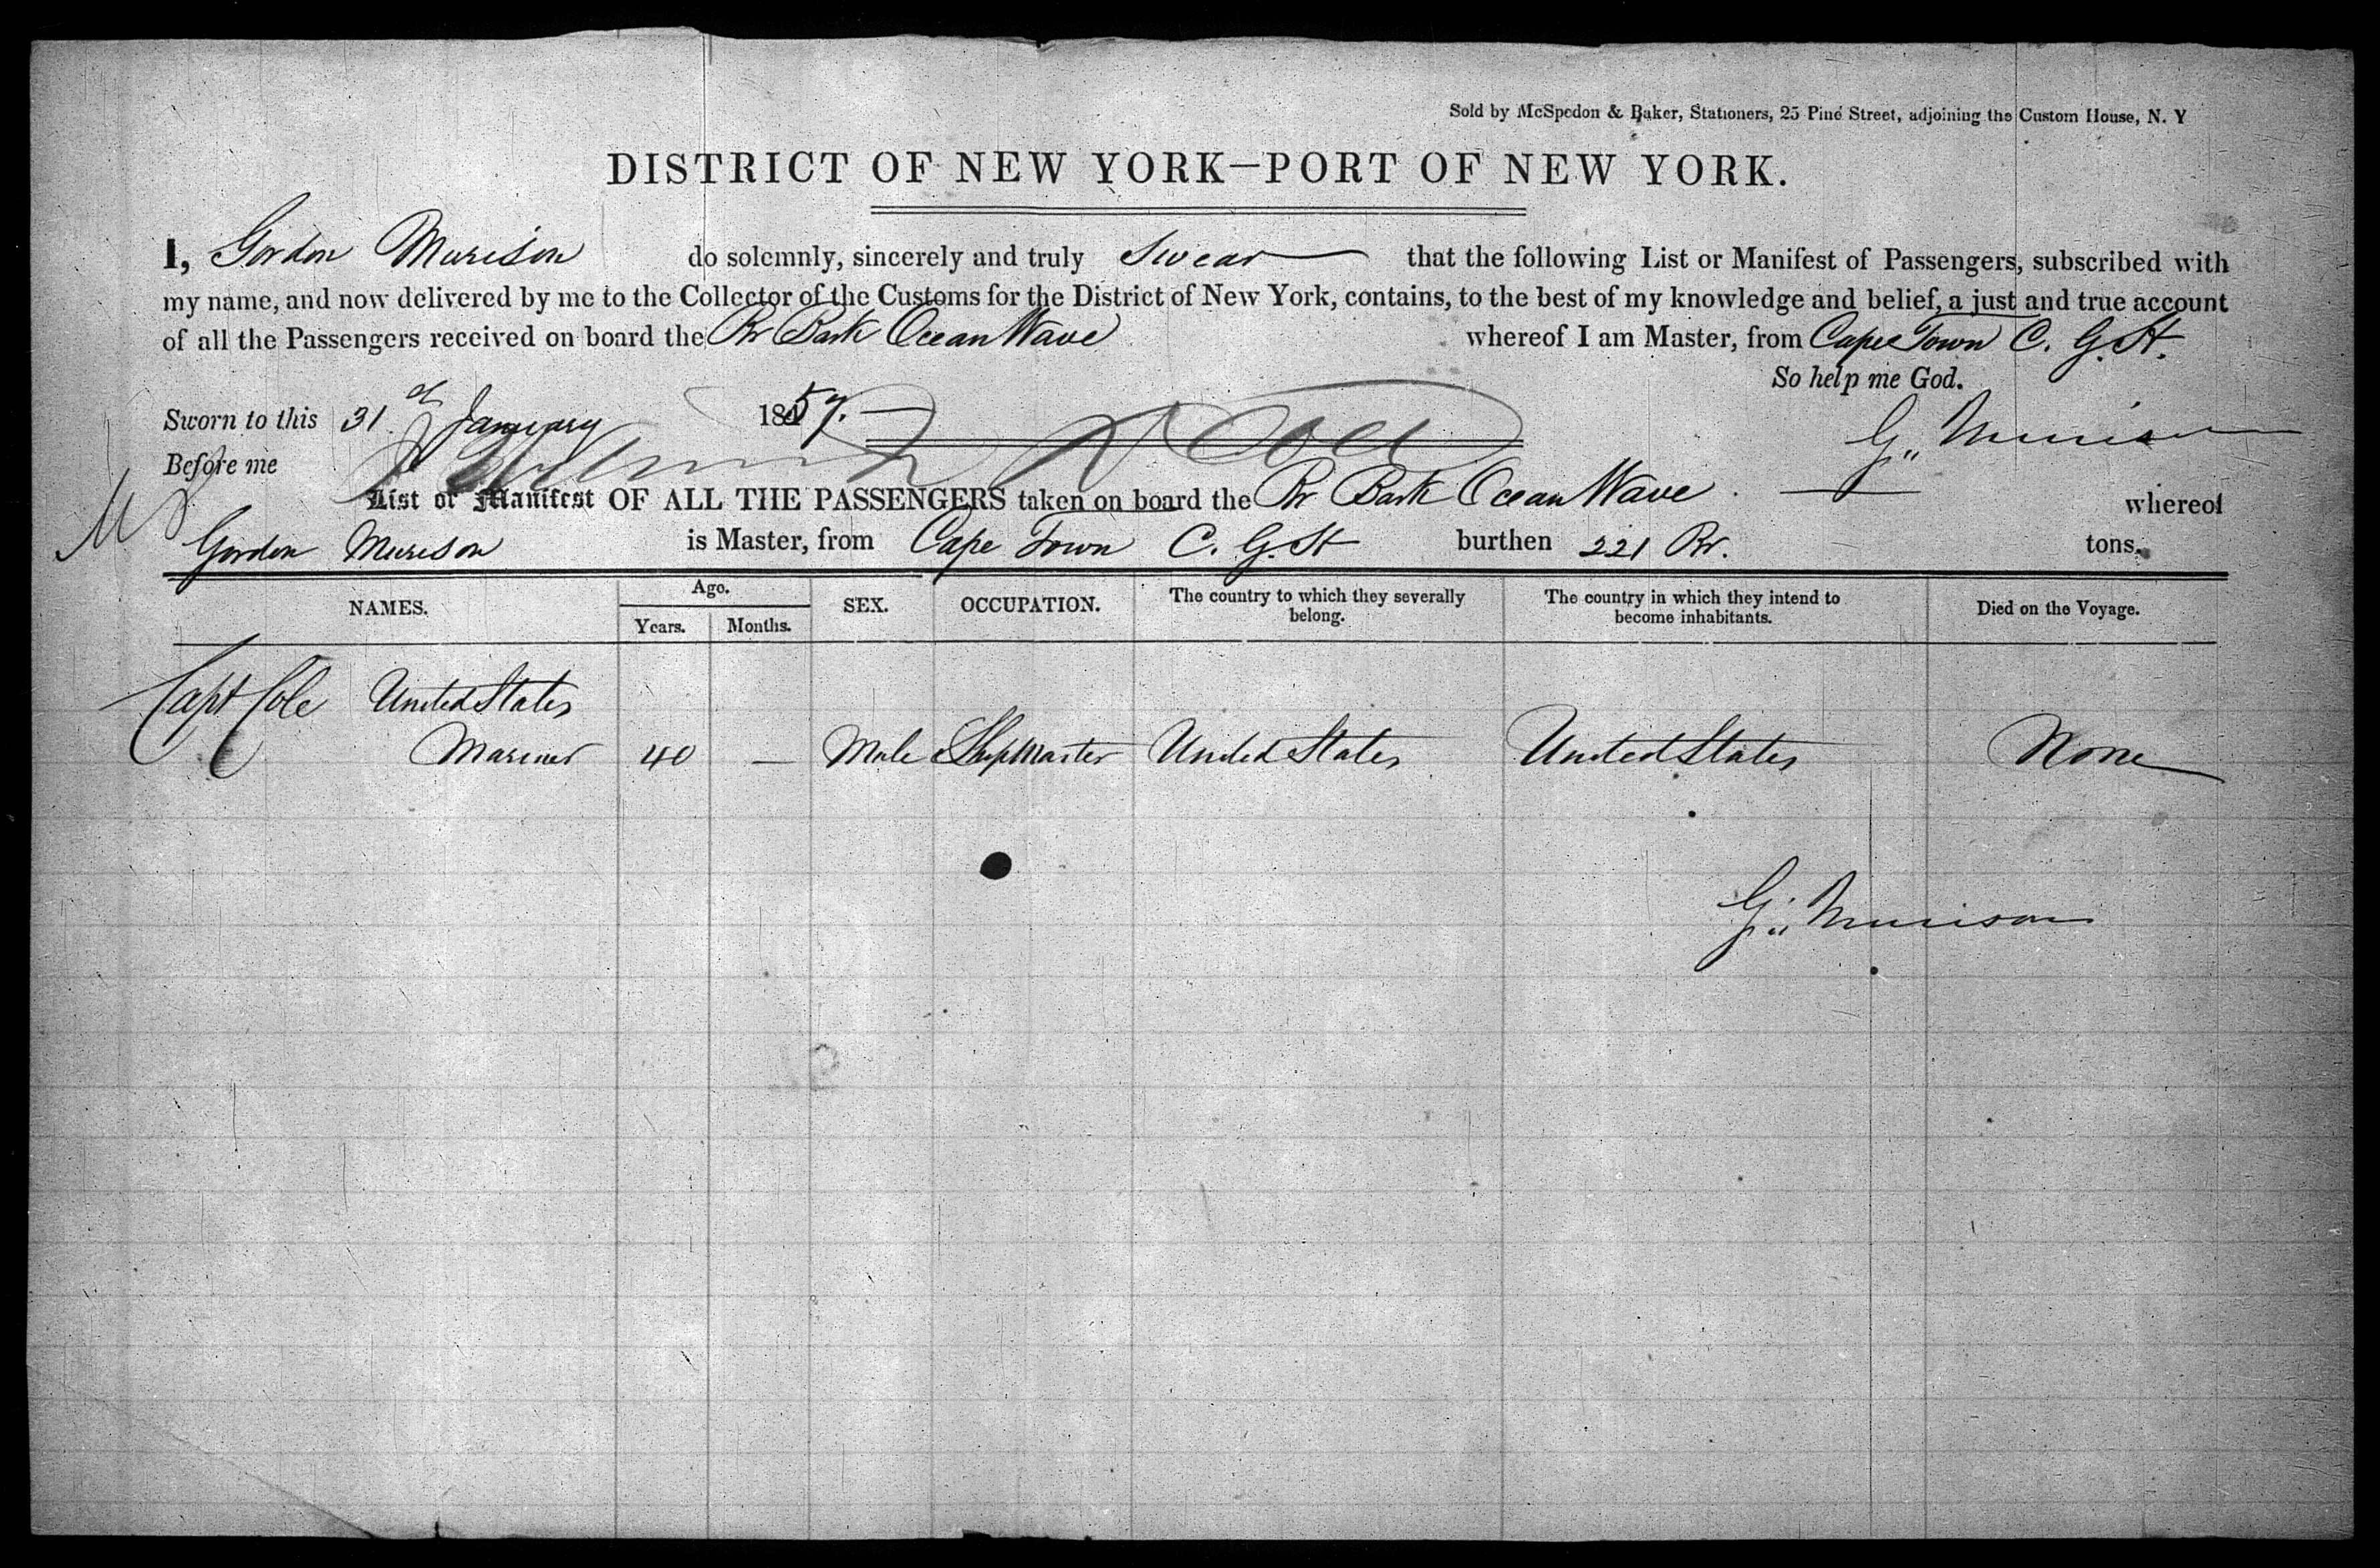 Sold by McSpedon & Baker, Stationers, 25 Pine Street, adjoining the Custom House, N. Y
DISTRICT OF NEW YORK—PORT OF NEW YORK.
I, Gordon Murison do solemnly, sincerely and truly Swear that the following List or Manifest of Passengers, subscribed with
my name, and now delivered by me to the Collector of the Customs for the District of New York, contains, to the best of my knowledge and belief, a just and true account
of all the Passengers received on board the Br Bark Ocean Wave whereof I am Master, from Cape Town C. G. H.
So help me God.
Sworn to this 31 January 1857.
G. Murison
Before me
List or Manifest OF ALL THE PASSENGERS taken on board the Br Bark Ocean Wave whereof
Gordon Murison is Master, from Cape Town C. G. H burthen 221 Br. tons.
NAMES. Age. Years. Months. SEX. OCCUPATION. The country to which they severally belong. The country in which they intend to become inhabitants. Died on the Voyage.
Capt Cole United States
Mariner 40 — Male Shipmaster United States United States None
G. Murison